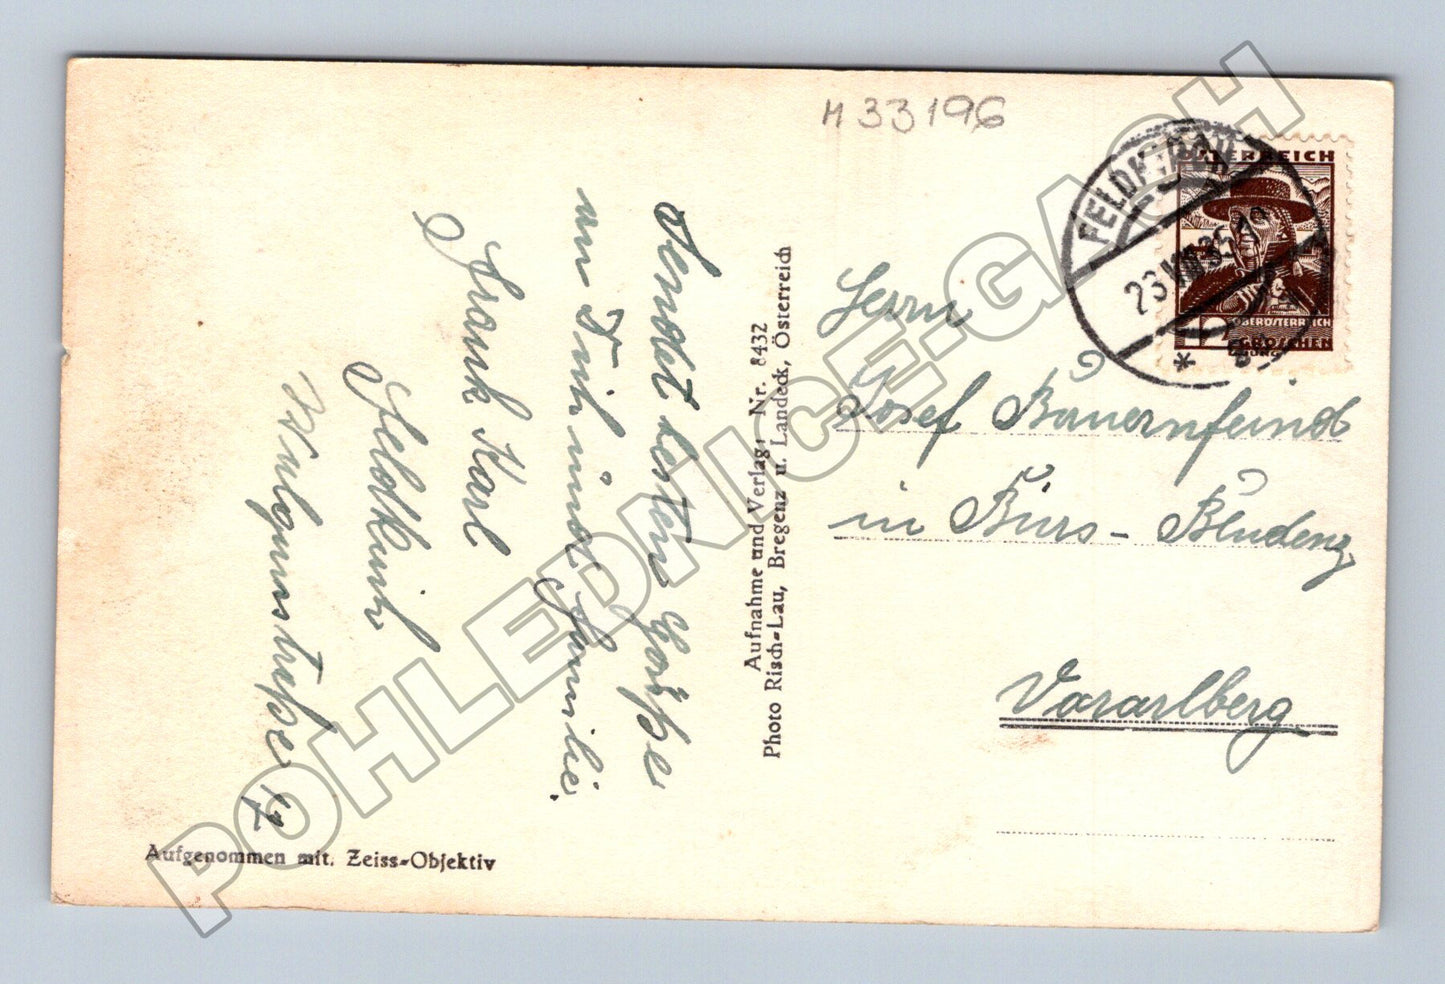 M 33196
FELDKIRCH
23.VIII.35
ÖSTERREICH
OBERÖSTERREICH
12 GROSCHEN
Herrn
Josef Bauernfeind
in Bürs - Bludenz
Vorarlberg
Aufnahme und Verlag, Nr. 8432
Photo Risch-Lau, Bregenz u. Landeck, Österreich
Sendet besten Grüße
an Dich und Familie.
Frank Karl
Feldkirch
Aufgenommen mit. Zeiss-Objektiv
POHLEDNICE-GACH